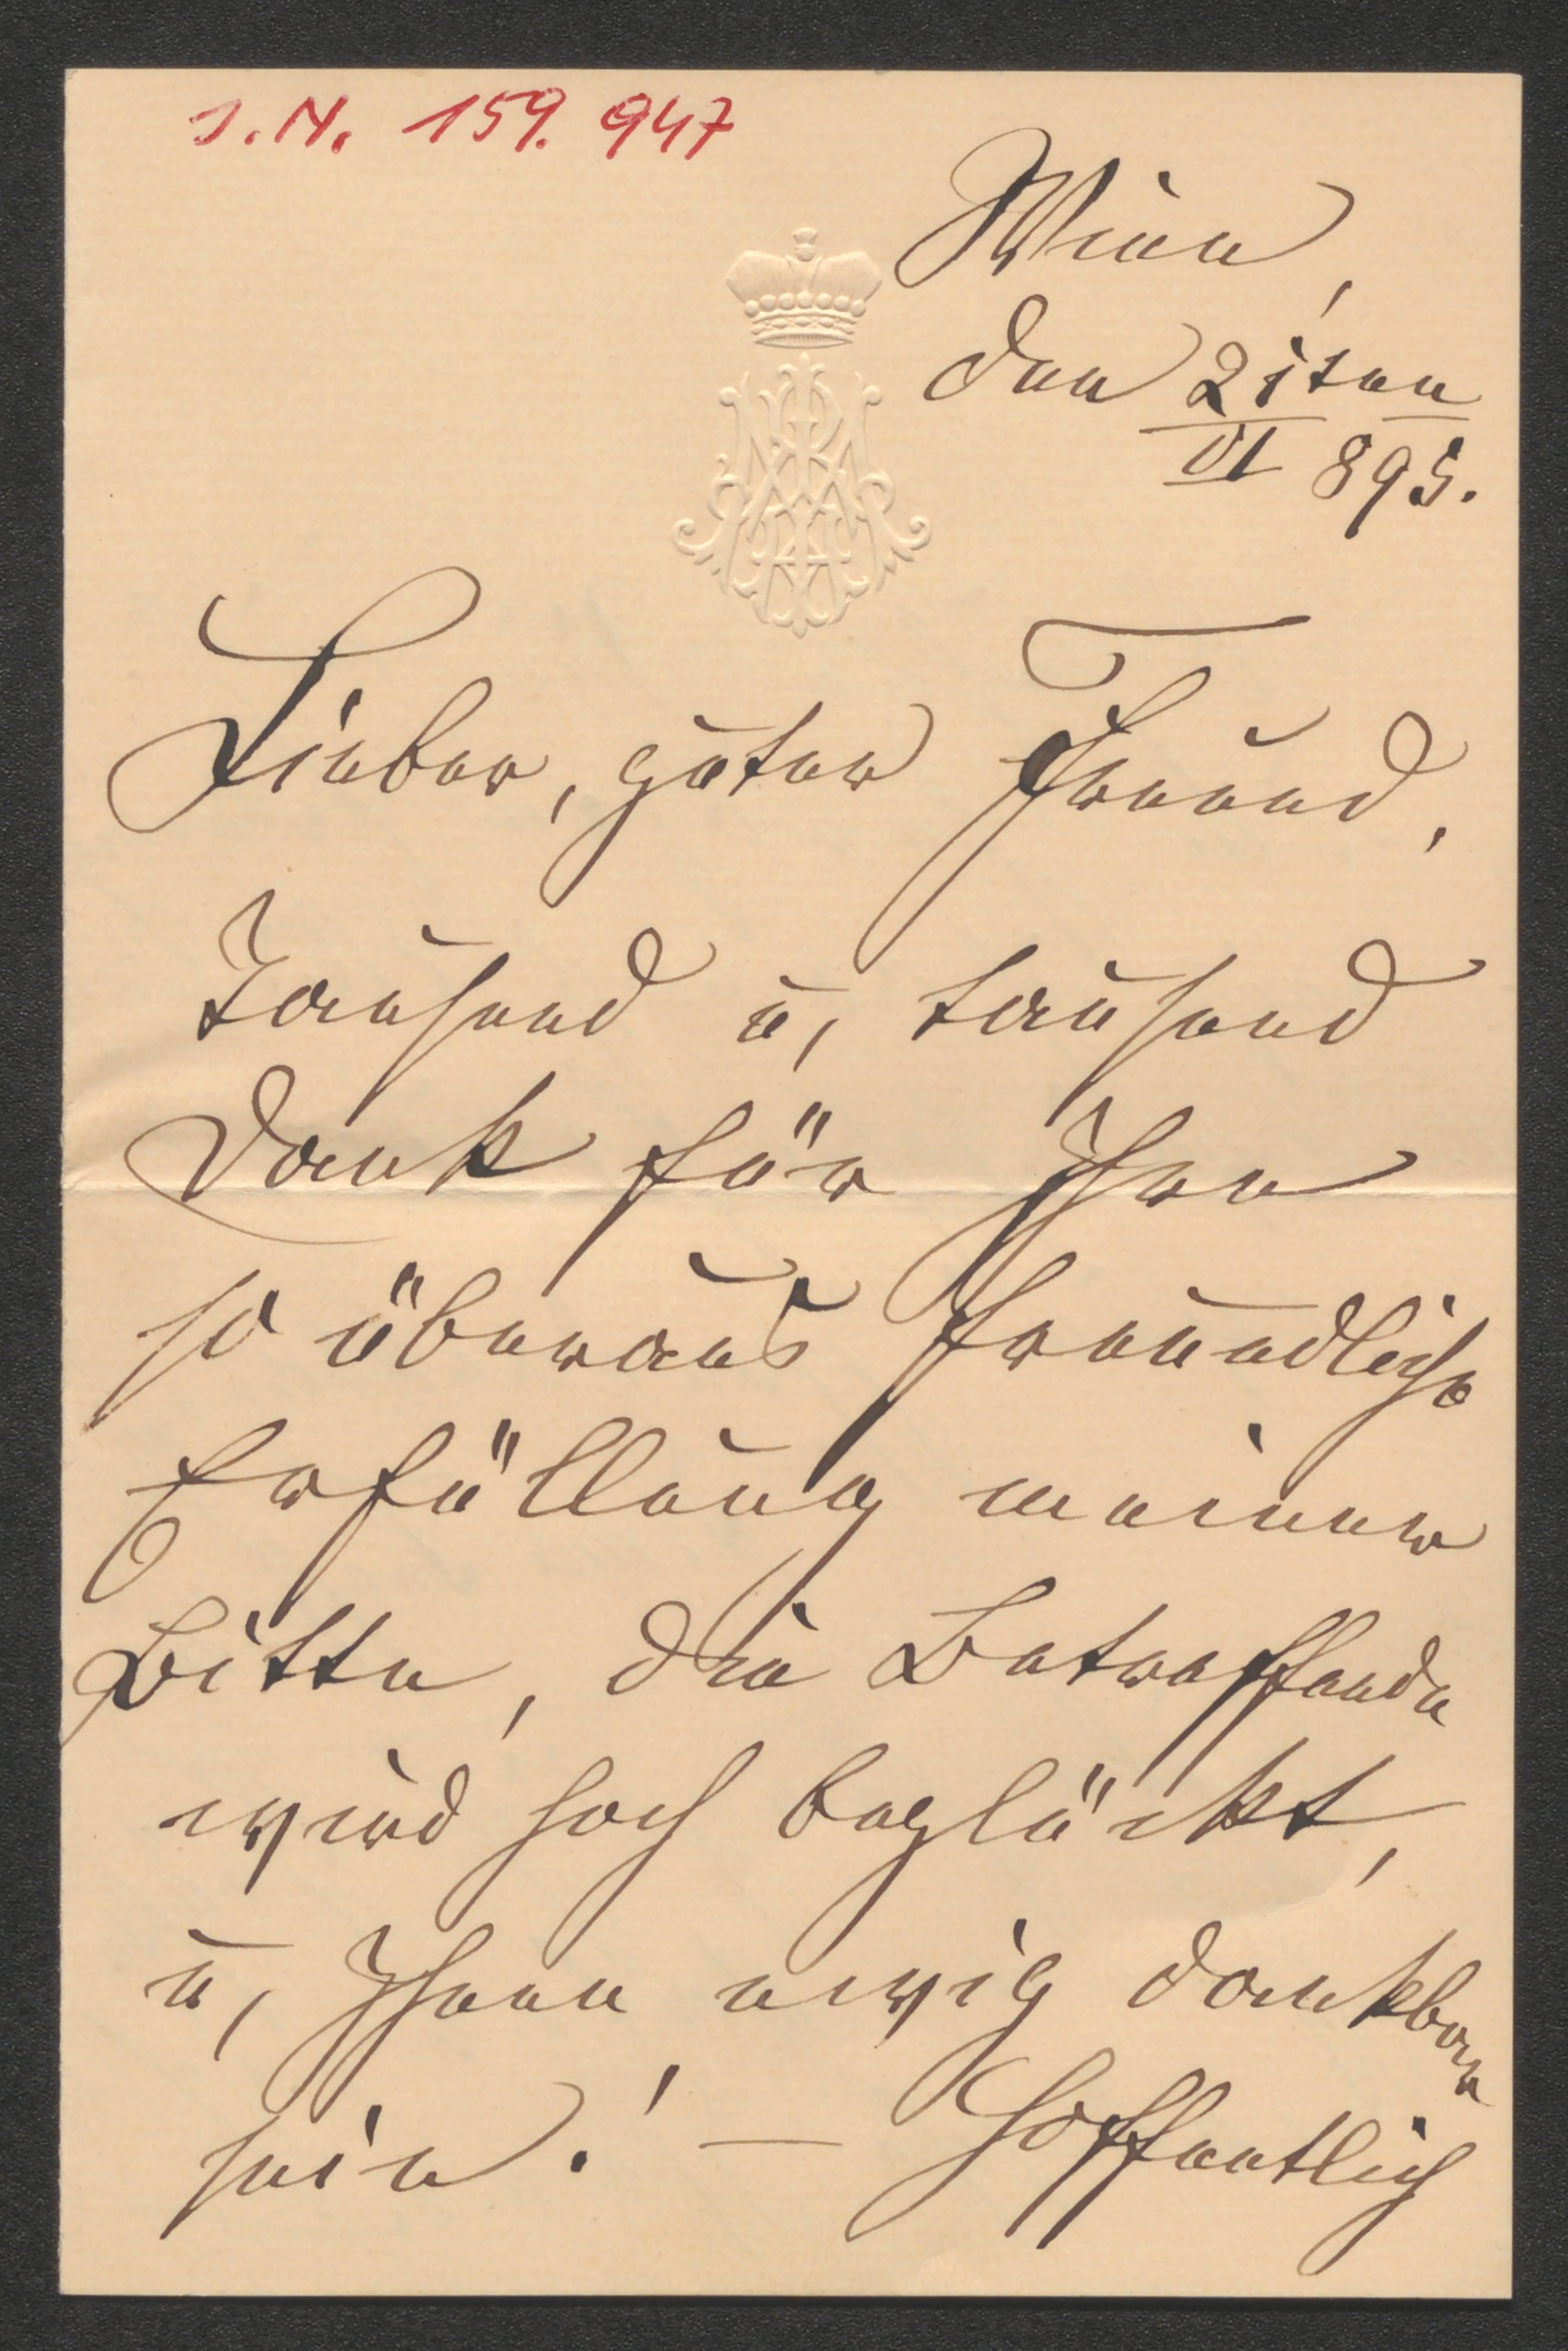 I.N. 159.947
Wien,
den 21ten
VI 895.
Lieber, guter Freund,
Tausend u, tausend
Dank für Ihre
so überaus freundliche
Erfüllung meiner
Bitte, die Betreffende
wird hoch beglückt,
u, Ihnen ewig dankbar
sein! — Hoffentlich